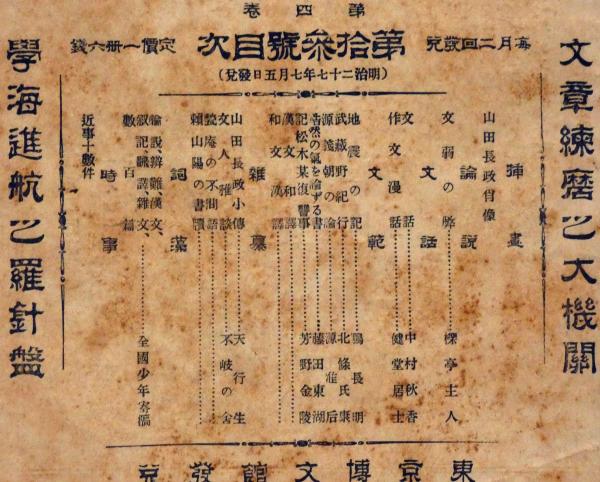 第四卷
每月二回發兌
第拾參號目次
定價一冊六錢
（明治二十七年七月五日發兌）
文章練磨之大機關
插畫
山田長政肖像
論說
文弱の弊……樑亭主人
文話
文話……中村秋香
作文漫話……健堂居士
文範
地震の記……鴨長明
武藏野紀行……北條氏康
源義朝の論……源准后
浩然の氣を論ずる書……藤田東湖
記松木某復讐事……芳野金陵
漢文和譯
和文漢譯
雜纂
山田長政小傳……天行生
文人雅談……不岐の舍
読庵の不問語
賴山陽の書牘
詞藻
論說、辨難、漢文、
叙記、戲謔、雜文、
數百篇……全國少年寄稿
時事
近事十數件
學海進航之羅針盤
東京博文館發兌